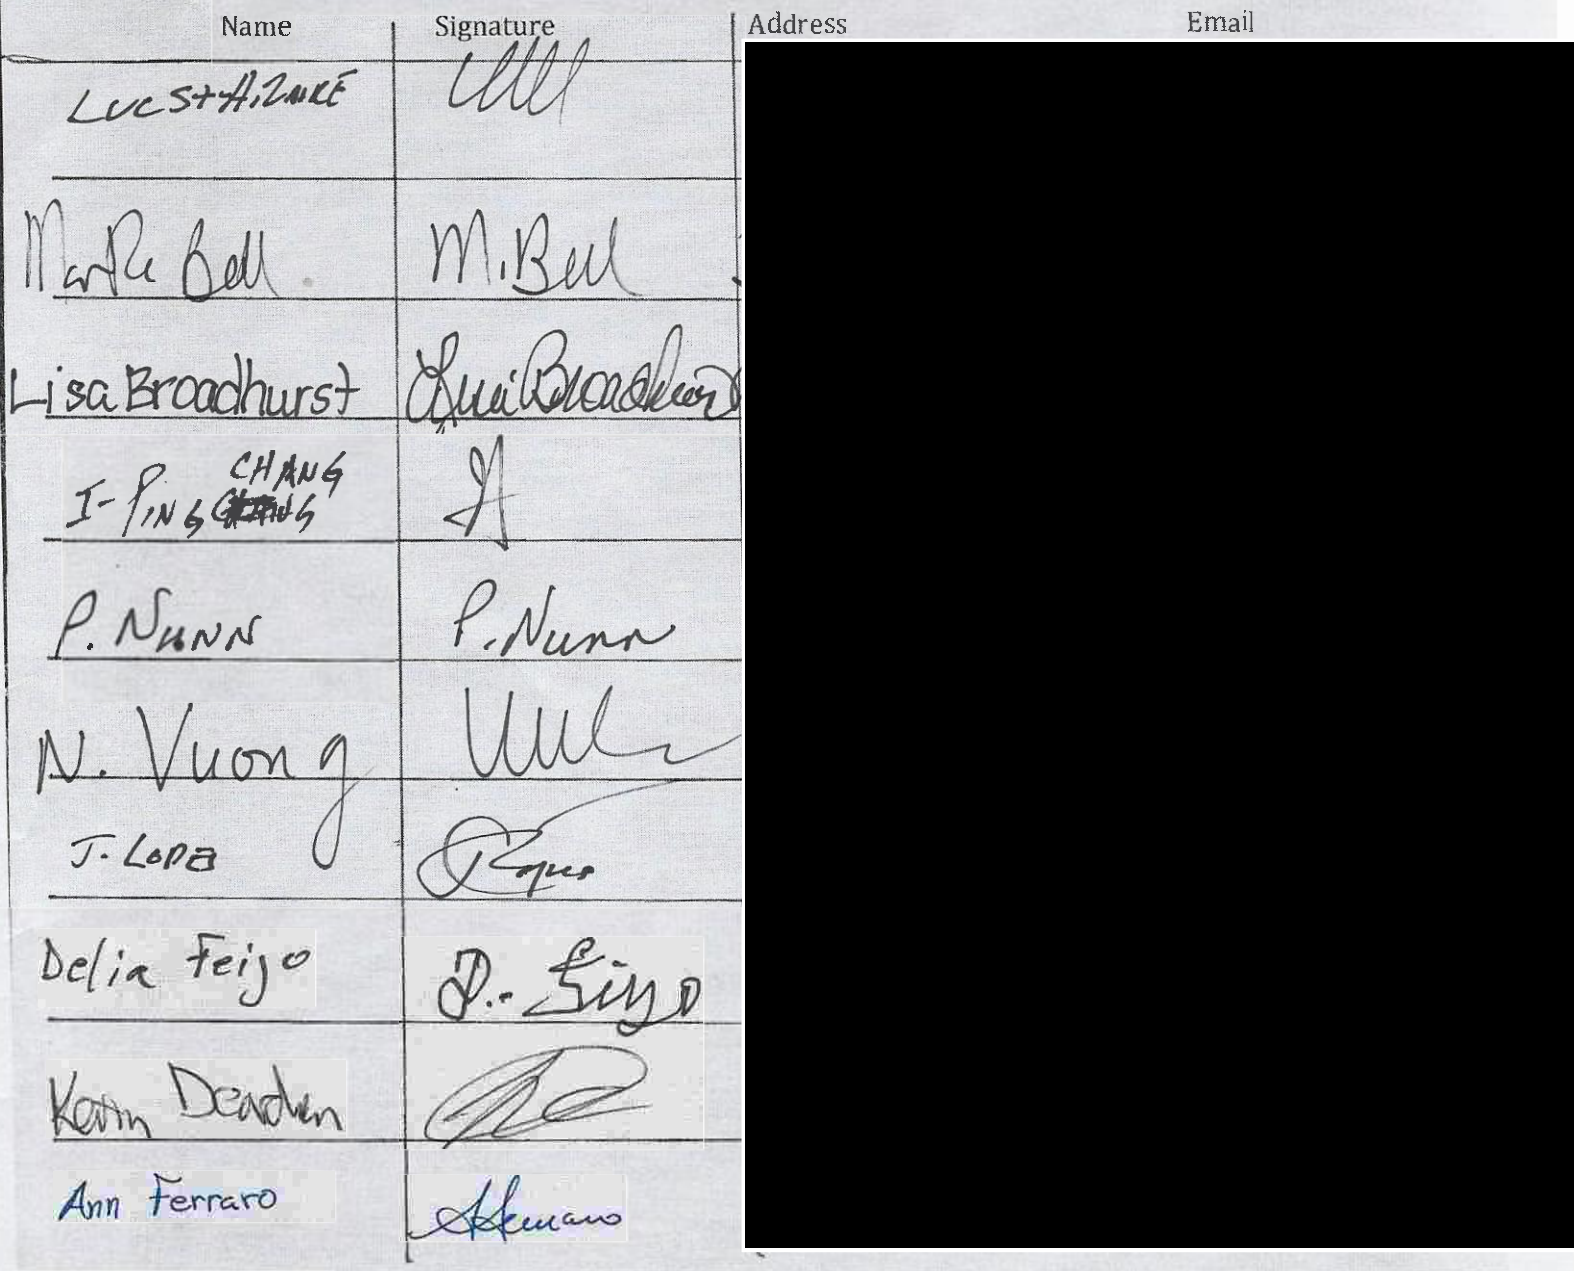 Name Signature Address Email
Luc St-Hilaire
Bell M. Bell
Lisa Broadhurst Lisa Broadhurst
CHANG
I-PING
P. NUNN P. Nunn
N. Vuong
J. LOPEZ
Delia Feijo D. Feijo
Kevin Dearden
Ann Ferraro AFerraro